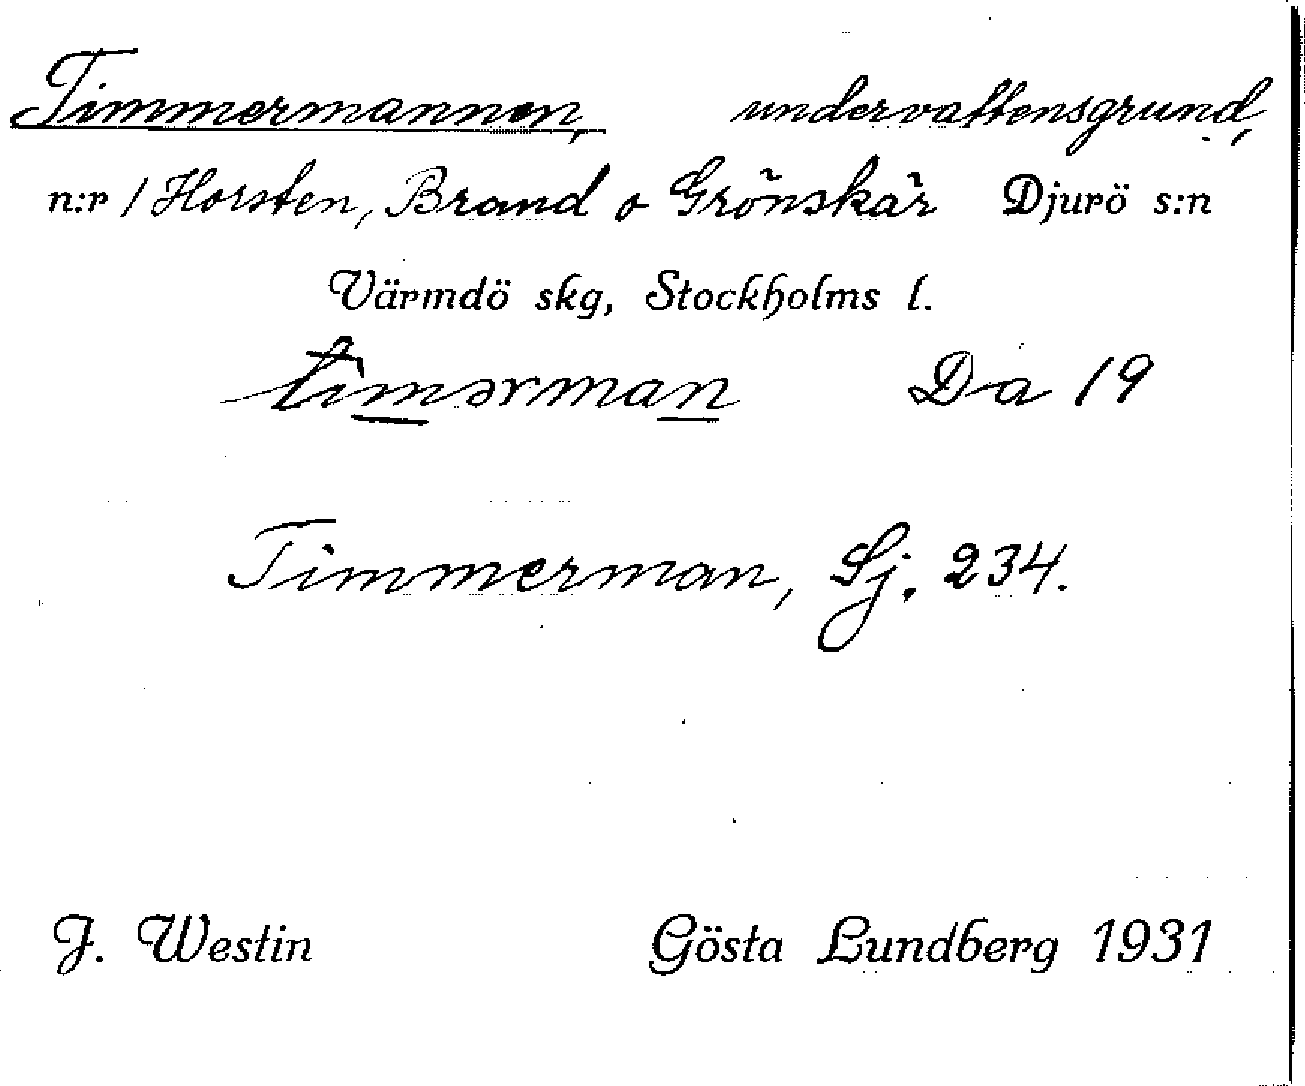 Timmermannen, undervattensgrund,
n:r 1 Horsten, Brand o Grönskär Djurö s:n
Värmdö skg, Stockholms l.
timərman Da 19
Timmerman, Sj. 234.
J. Westin Gösta Lundberg 1931